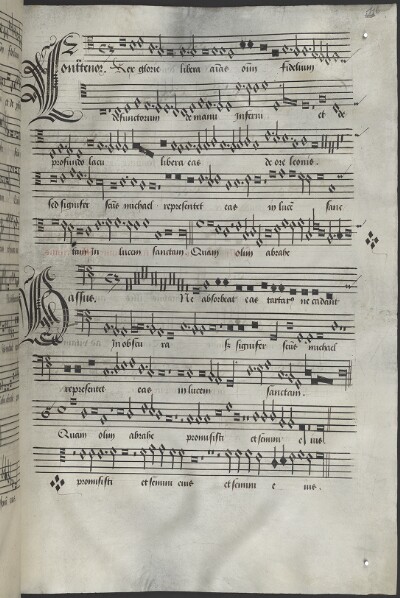 Contratenor. Rex glorie libera aīas oīm fidelium
defunctorum de manu Inferni et de
profundo lacu libera eas de ore leonis.
sed signifer scūs michael representet eas in lucē sanc
tam in lucem sanctam. Quam olim abrahe
Bassus. Ne absorbeat eas tartarꝰ ne cadant
In obscu ra sꝫ signifer scūs michael
representet eas in lucem sanctam.
Quam olim abrahe promisisti et semini eius
promisisti et semini eius et semini e ius.